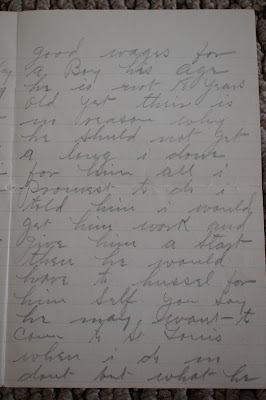 good wages for
a Boy his age
he is not 18 years
old yet then is
no reason why
he shuld not get
a long i done
for him all i
promest to do i
told him i would
get him work and
give him a start
then he would
have to hussel for
him self you say
he may want-t
Come to St Louis
when i do un
dout but what he